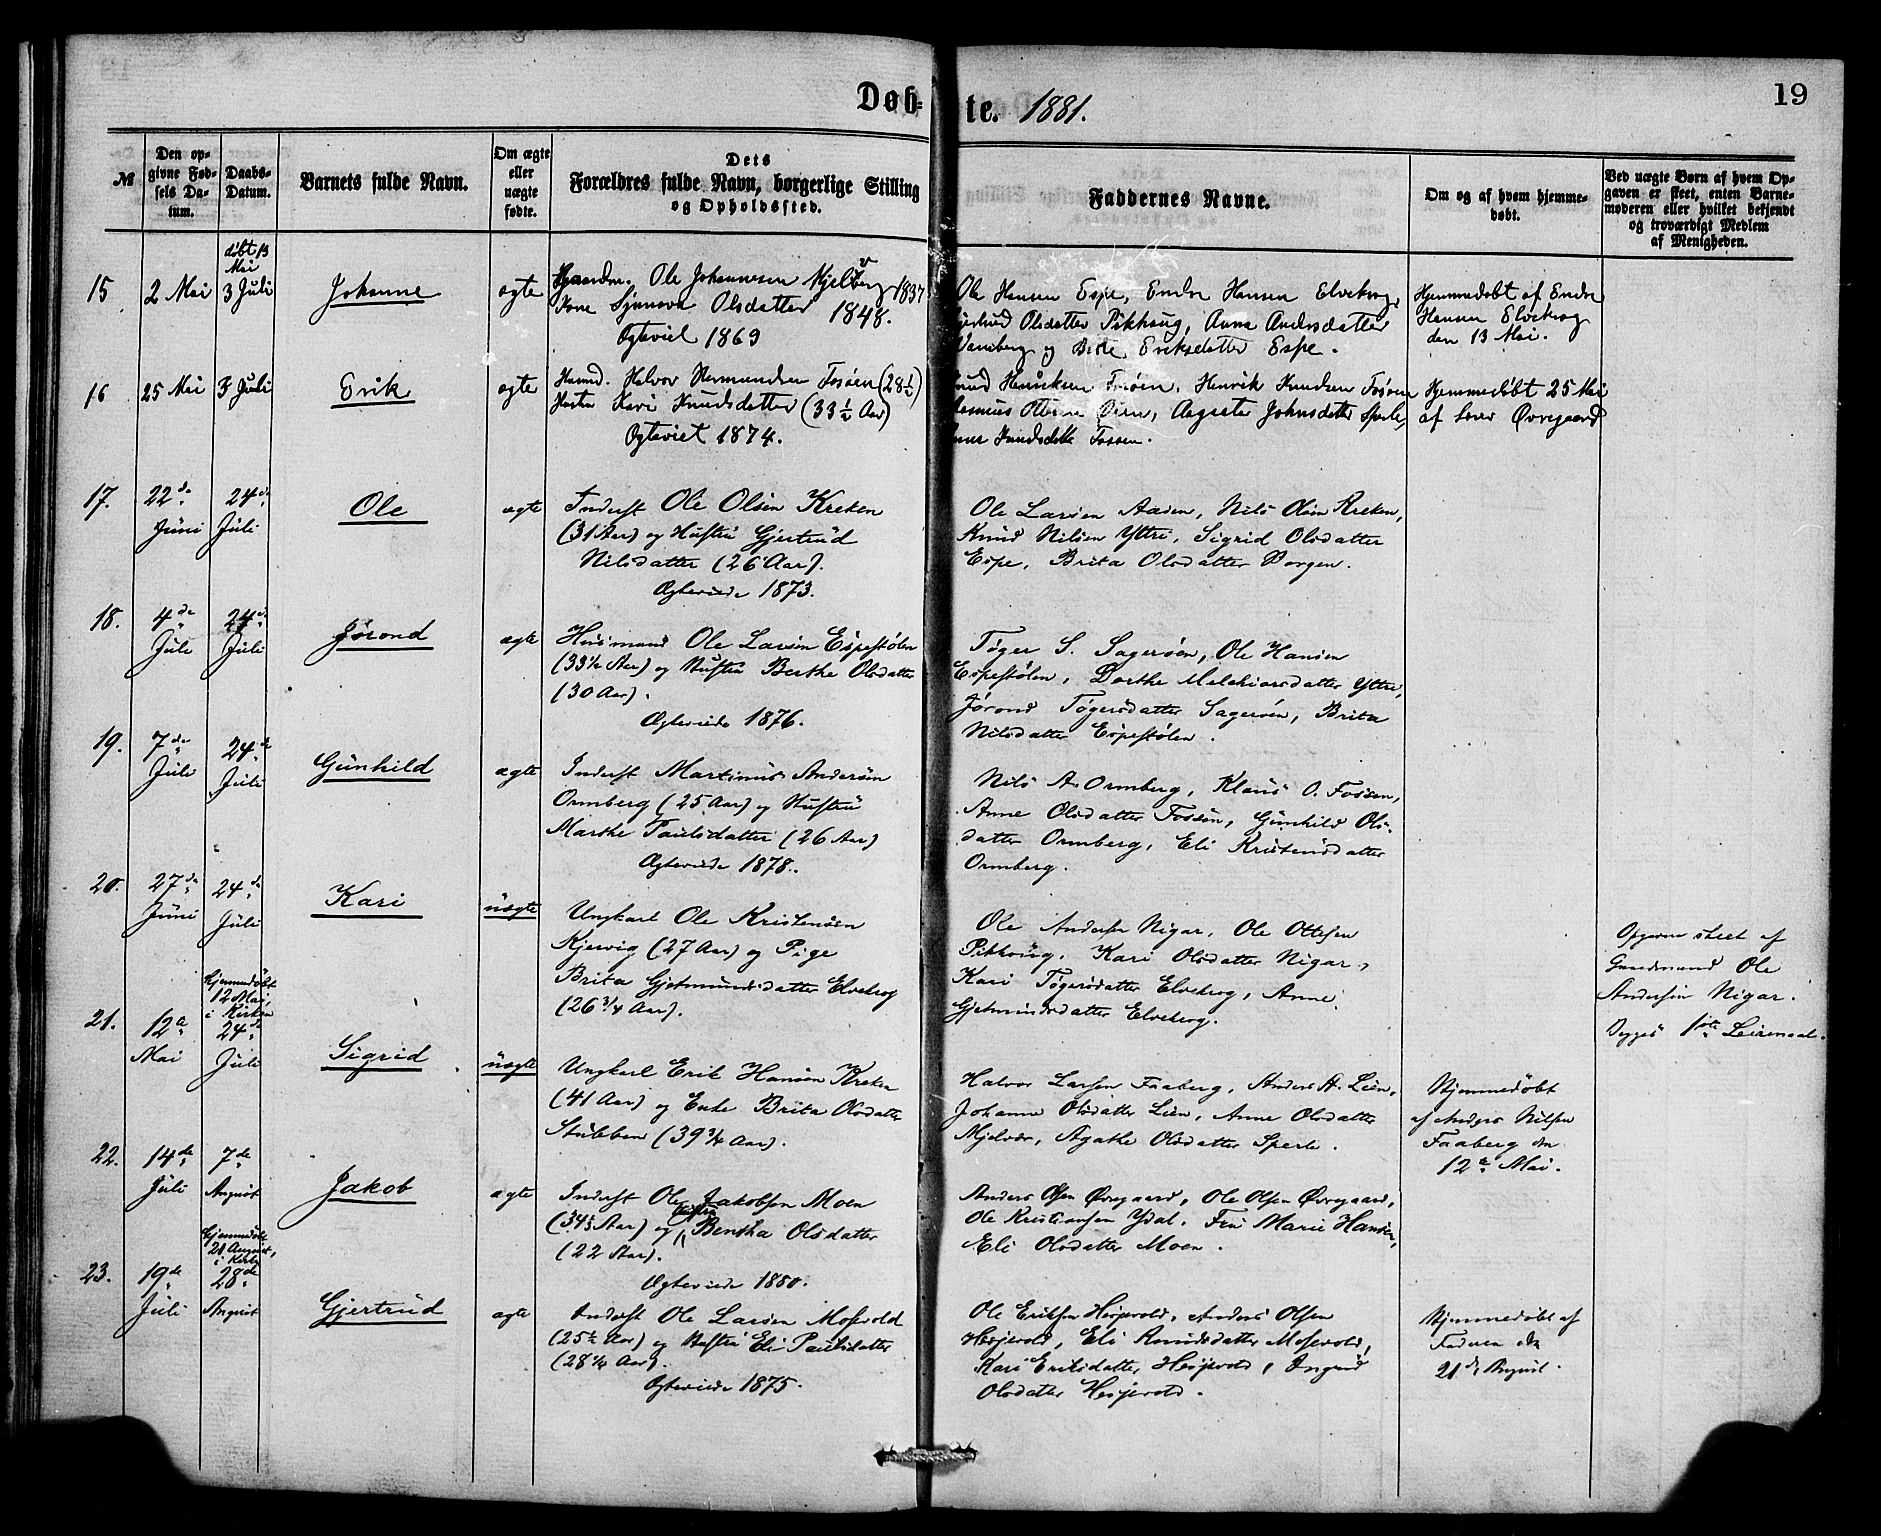 Døb=te. 1881.
19
№
Den op=
givne Fød=
sels Da=
tum.
Daabs=
Datum.
Barnets fulde Navn.
Om ægte
eller
uægte
fødte.
Dets
Forældres fulde Navn, borgerlige Stilling
og Opholdssted.
Faddernes Navne.
Om og af hvem hjemme=
døbt.
Ved uægte Børn af hvem Op=
gaven er skeet, enten Barne=
moderen eller hvilket bekjendt
og troværdigt Medlem
af Menigheden.
15
2 Mai
døbt 13
Mai
3 Juli
Johanne
ægte
Gaardm. Ole Johannesen Mjelvær 1837
Kone Synneva Olsdatter 1848.
Ægteviet 1869
Ole Hansen Espe, Endre Hansen Elvekrog,
Olsdatter Pikhaug, Anna Andersdatter
og Brite Eriksdatter Espe.
Hjemmedøbt af Endre
Hansen Elvekrog
den 13 Mai.
16
25 Mai
3 Juli
Erik
ægte
Husmd. Halvor Fosøen (28½)
Hustru Kari Knudsdatter (33½ Aar)
Ægteviet 1874.
Henriksen Fosøen, Henrik Knudsen Fosøen
Rasmus Øien, Aagaata Johnsdatter Sperle,
Knudsdatter Fossen.
Hjemmedøbt 25 Mai
af Øvregaard
17.
22de
Juni
24de
Juli
Ole
ægte
Inderst Ole Olsen Kreken
(31 Aar) og Hustru Gjertrud
Nilsdatter (26 Aar).
Ægteviede 1873.
Ole Larsen Aasen, Nils Olsen Kreken,
Knud Nilsen Yttri, Sigrid Olsdatter
Espe, Brita Olsdatter Borgen.
18.
4de
Juli
24de
Juli
Jørond
ægte
Husmand Ole Larsen Espestølen
(33½ Aar) og Hustru Berthe Olsdatter
(30 Aar).
Ægteviede 1876.
Tøger S. Sagerøen, Ole Hansen
Espestølen, Dorthe Melchiorsdatter Yttri,
Jørond Tøgersdatter Sagerøen, Brita
Nilsdatter Espestølen.
19.
7de
Juli
24de
Juli
Gunhild
ægte
Inderst Martinus Andersen
Ormberg (25 Aar) og Hustru
Marthe Paulsdatter (26 Aar)
Ægteviede 1878.
Nils A. Ormberg, Klaus O. Fossen,
Anne Olsdatter Fossen, Gunhild Ols-
datter Ormberg, Eli Kristensdatter
Ormberg.
20.
27de
Juni
24de
Juli
Kari
uægte
Ungkarl Ole Kristensen
Kjervig (27 Aar) og Pige
Brita Gjetmundsdatter Elvekrog
(26 3/4 Aar).
Ole Andersen Nigar, Ole Ottesen
Pikhaug, Kari Olsdatter Nigar,
Kari Tøgersdatter Elvekrog, Anne
Gjetmundsdatter Elvekrog.
Opgaven skeet af
Gaardmand Ole
Andersen Nigar.
Begges 1ste Leiermaal.
21.
12te
Mai
Hjemmedøbt
12 Mai
i Kirken
24de
Juli
Sigrid
uægte
Ungkarl Erik Hansen Kreken
(41 Aar) og Enke Brita Olsdatter
Stubben (39 3/4 Aar).
Halvor Larsen Faaberg, Anders A. Lien,
Johanne Olsdatter Lien, Anne Olsdatter
Mjelvær, Agathe Olsdatter Sperle.
Hjemmedøbt
af Anders Nilsen
Faaberg den
12te Mai.
22.
14de
Juli
7de
August
Jakob
ægte
Inderst Ole Jakobsen Moen
(34½ Aar) og Hustru Bentha Olsdatter
(22 Aar).
Ægteviede 1880.
Anders Olsen Øvregaard, Ole Olsen Øvregaard,
Ole Kristiansen Ydal, Fru Marie Hansen,
Eli Olsdatter Moen.
23.
19de
Juli
Hjemmedøbt
21 August,
i Kirken
28de
August
Gjertrud
ægte
Inderst Ole Larsen Mosevold
(25½ Aar) og Hustru Eli Paulsdatter
(28¼ Aar).
Ægteviede 1875.
Ole Eriksen Hesjevold, Anders Olsen
Hesjevold, Eli Knudsdatter Mosevold,
Kari Eriksdatter Hesjevold, Ingrid
Olsdatter Hesjevold.
Hjemmedøbt af
Faderen den
21de August.